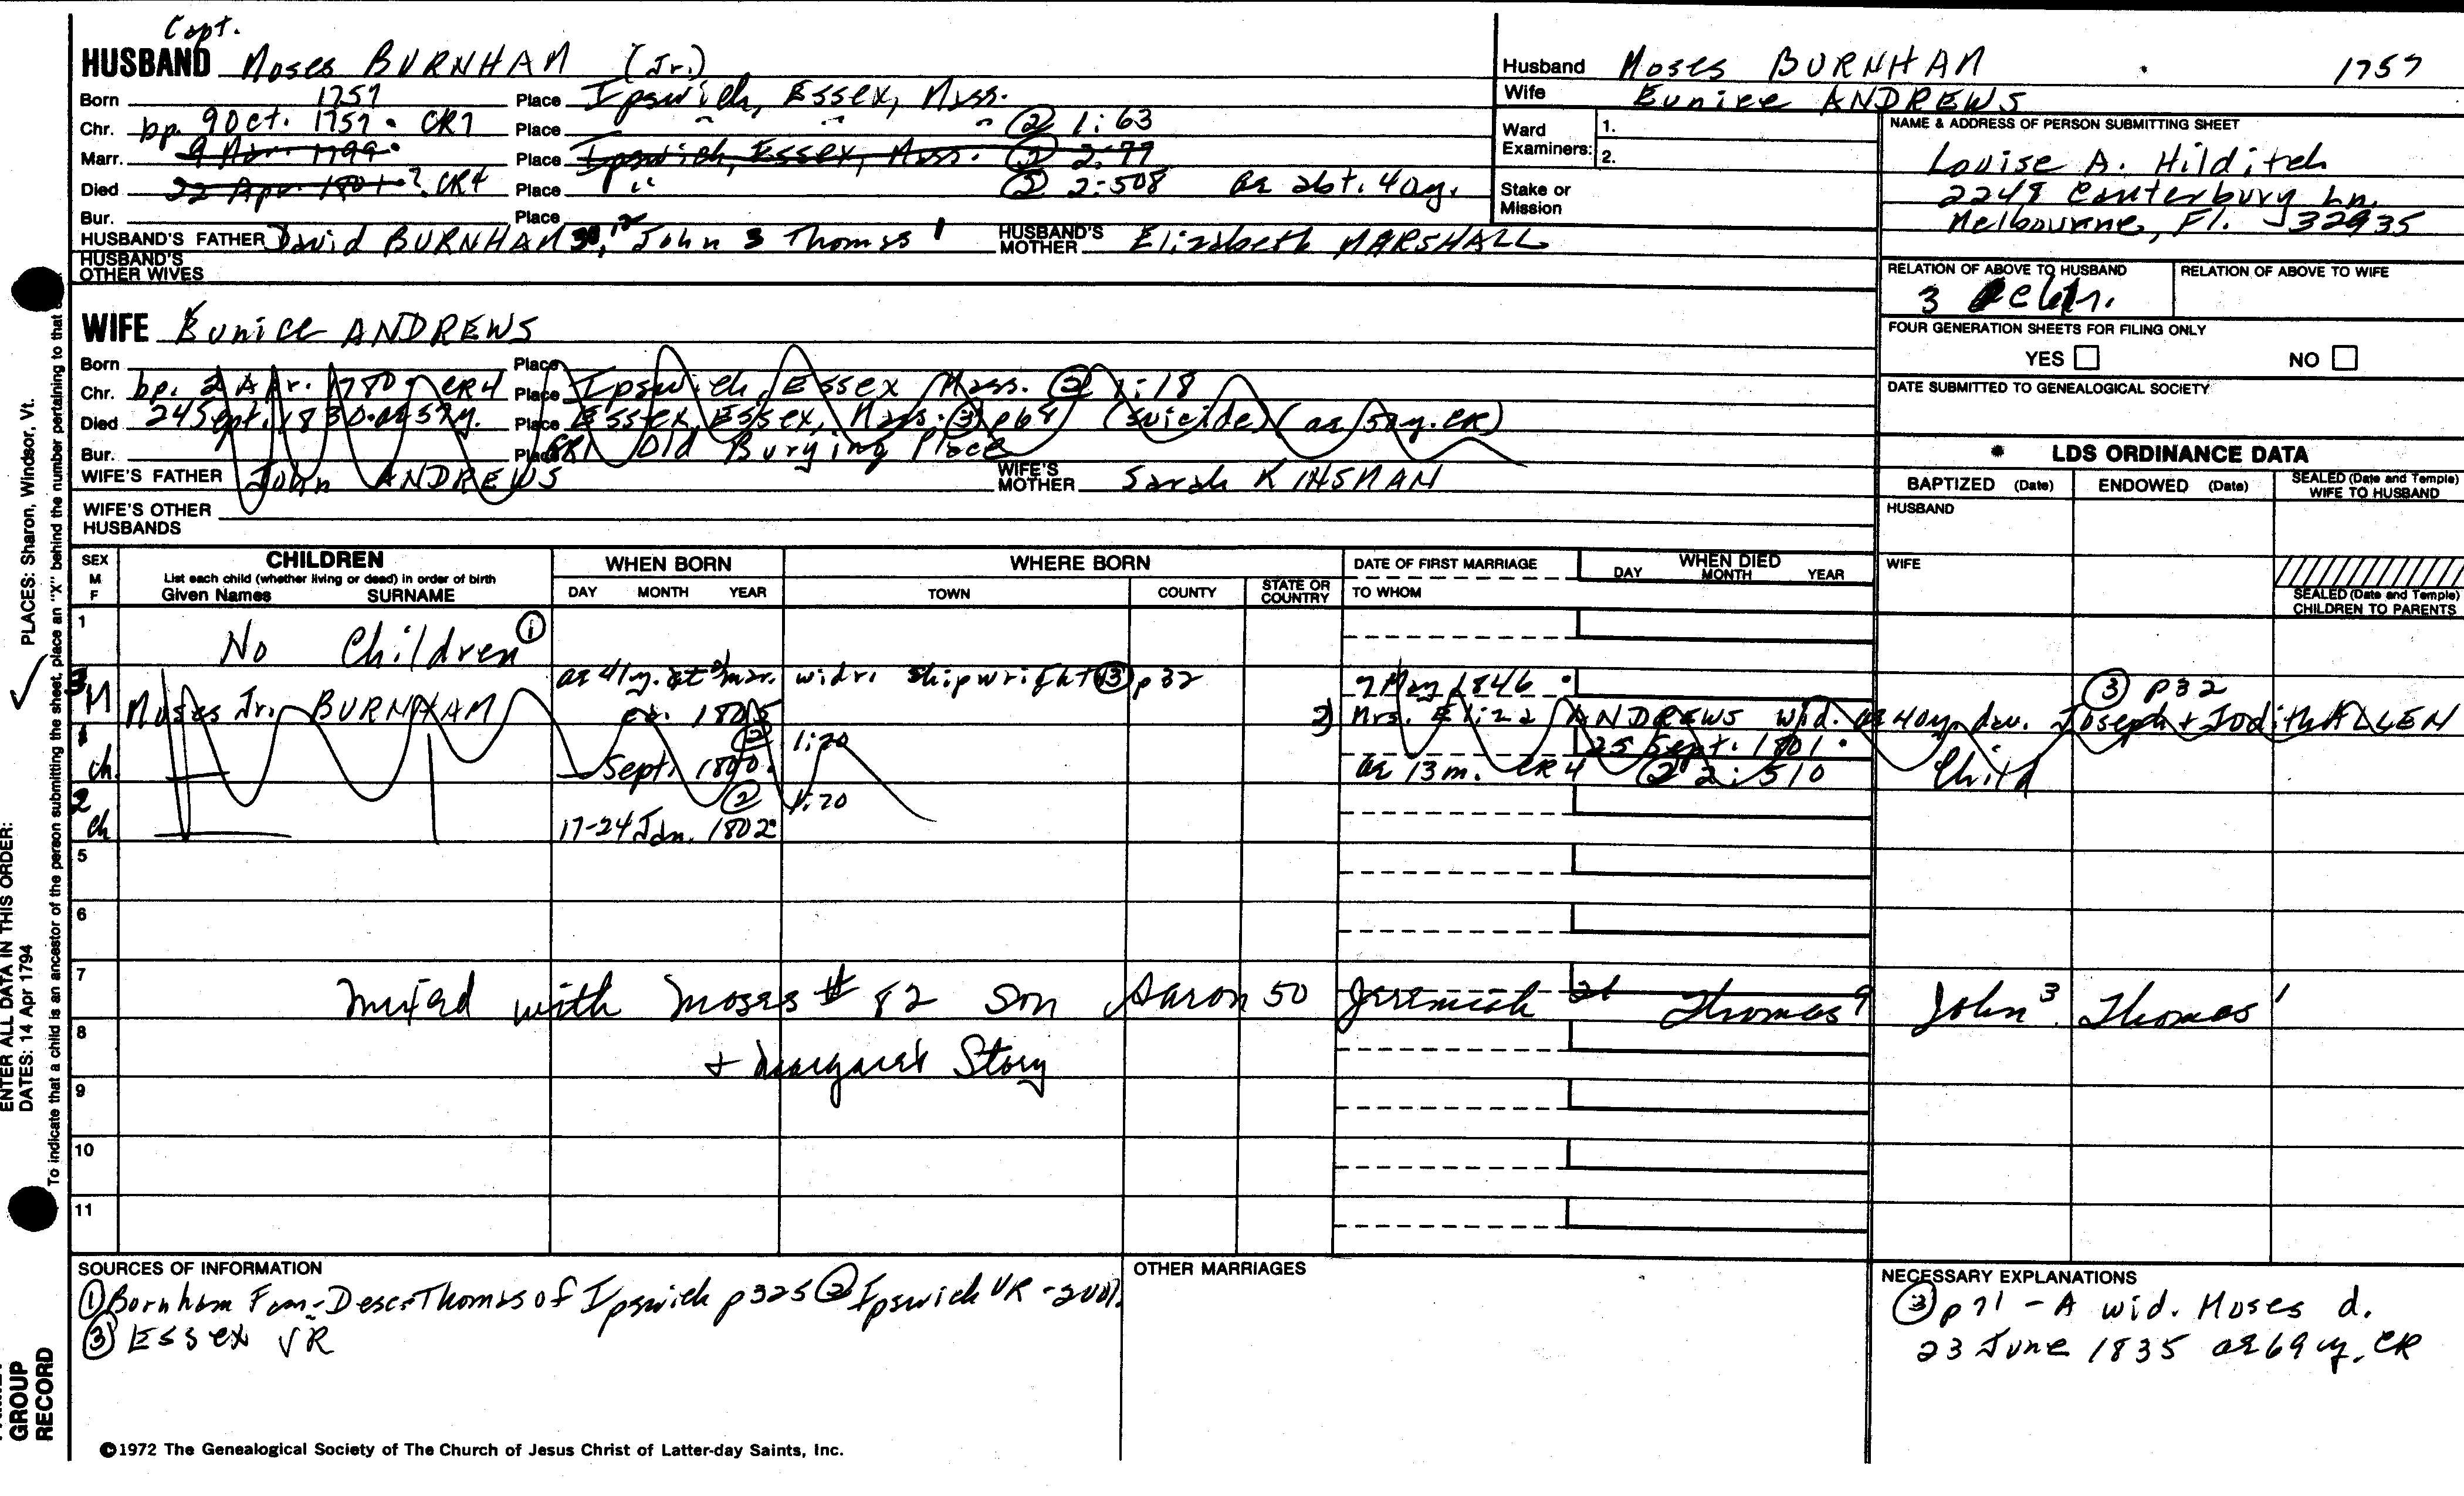 Capt.
HUSBAND Moses BURNHAM (Jr.)
Born 1757 Place Ipswich, Essex, Mass.
Chr. bp. 9 Oct. 1757. CR7 Place " " " ② 1:63
Marr. 9 Nov. 1799. Place Ipswich, Essex, Mass. ② 2:77
Died 22 Apr. 1801.? CR4 Place " ② 2:508 ae abt. 40y.
Bur. Place
HUSBAND'S FATHER David BURNHAM 12, John 3 Thomas 1 HUSBAND'S MOTHER Elizabeth MARSHALL
HUSBAND'S OTHER WIVES
WIFE Eunice ANDREWS
Born Place
Chr. bp. 2 Apr. 1780. CR4 Place Ipswich, Essex Mass. ② 1:18
Died 24 Sept. 1830. ae 52y. Place Essex, Essex, Mass. ③ p64 (suicide) (ae 50y. CR)
Bur. Place CR1 Old Burying Place
WIFE'S FATHER John ANDREWS WIFE'S MOTHER Sarah KINSMAN
WIFE'S OTHER HUSBANDS
Husband Moses BURNHAM 1757
Wife Eunice ANDREWS
Ward Examiners: 1.
2.
Stake or Mission
NAME & ADDRESS OF PERSON SUBMITTING SHEET
Louise A. Hilditch
2248 Canterbury Ln.
Melbourne, Fl. 32935
RELATION OF ABOVE TO HUSBAND RELATION OF ABOVE TO WIFE
3
FOUR GENERATION SHEETS FOR FILING ONLY
YES NO
DATE SUBMITTED TO GENEALOGICAL SOCIETY
LDS ORDINANCE DATA
BAPTIZED (Date) ENDOWED (Date) SEALED (Date and Temple) WIFE TO HUSBAND
HUSBAND
WIFE
SEALED (Date and Temple) CHILDREN TO PARENTS
SEX M F CHILDREN
List each child (whether living or dead) in order of birth
Given Names SURNAME
WHEN BORN
DAY MONTH YEAR
WHERE BORN
TOWN COUNTY STATE OR COUNTRY
DATE OF FIRST MARRIAGE
TO WHOM
WHEN DIED
DAY MONTH YEAR
1 No Children ①
ae 41y. at mar. widr. shipwright ③ p32 7 May 1846. ③ p32
3 M Moses Jr. BURNHAM ca. 1805 2) Mrs. Eliza ANDREWS wid. ae 40y. dau. Joseph + Judith ALLEN
1 ② 1:70 25 Sept. 1801.
ch. Sept. 1800. ae 13m. CR4 ② 2:510 Child
2 ② 1:70
ch 17-24 Jan. 1802
5
6
7 mixed with Moses # 82 son Aaron 50 Jeremiah 21 Thomas 9 John 3. Thomas 1
8 + Margaret Story
9
10
11
SOURCES OF INFORMATION
① Burnham Fam-Desc-Thomas of Ipswich p325 ② Ipswich VR
③ Essex VR
OTHER MARRIAGES
NECESSARY EXPLANATIONS
③ p71 - A wid. Moses d.
23 June 1835 ae 69y. CR
©1972 The Genealogical Society of The Church of Jesus Christ of Latter-day Saints, Inc.
ENTER ALL DATA IN THIS ORDER:
PLACES: Sharon, Windsor, Vt.
DATES: 14 Apr 1794
To indicate that a child is an ancestor of the person submitting the sheet, place an "X" behind the number pertaining to that
GROUP
RECORD